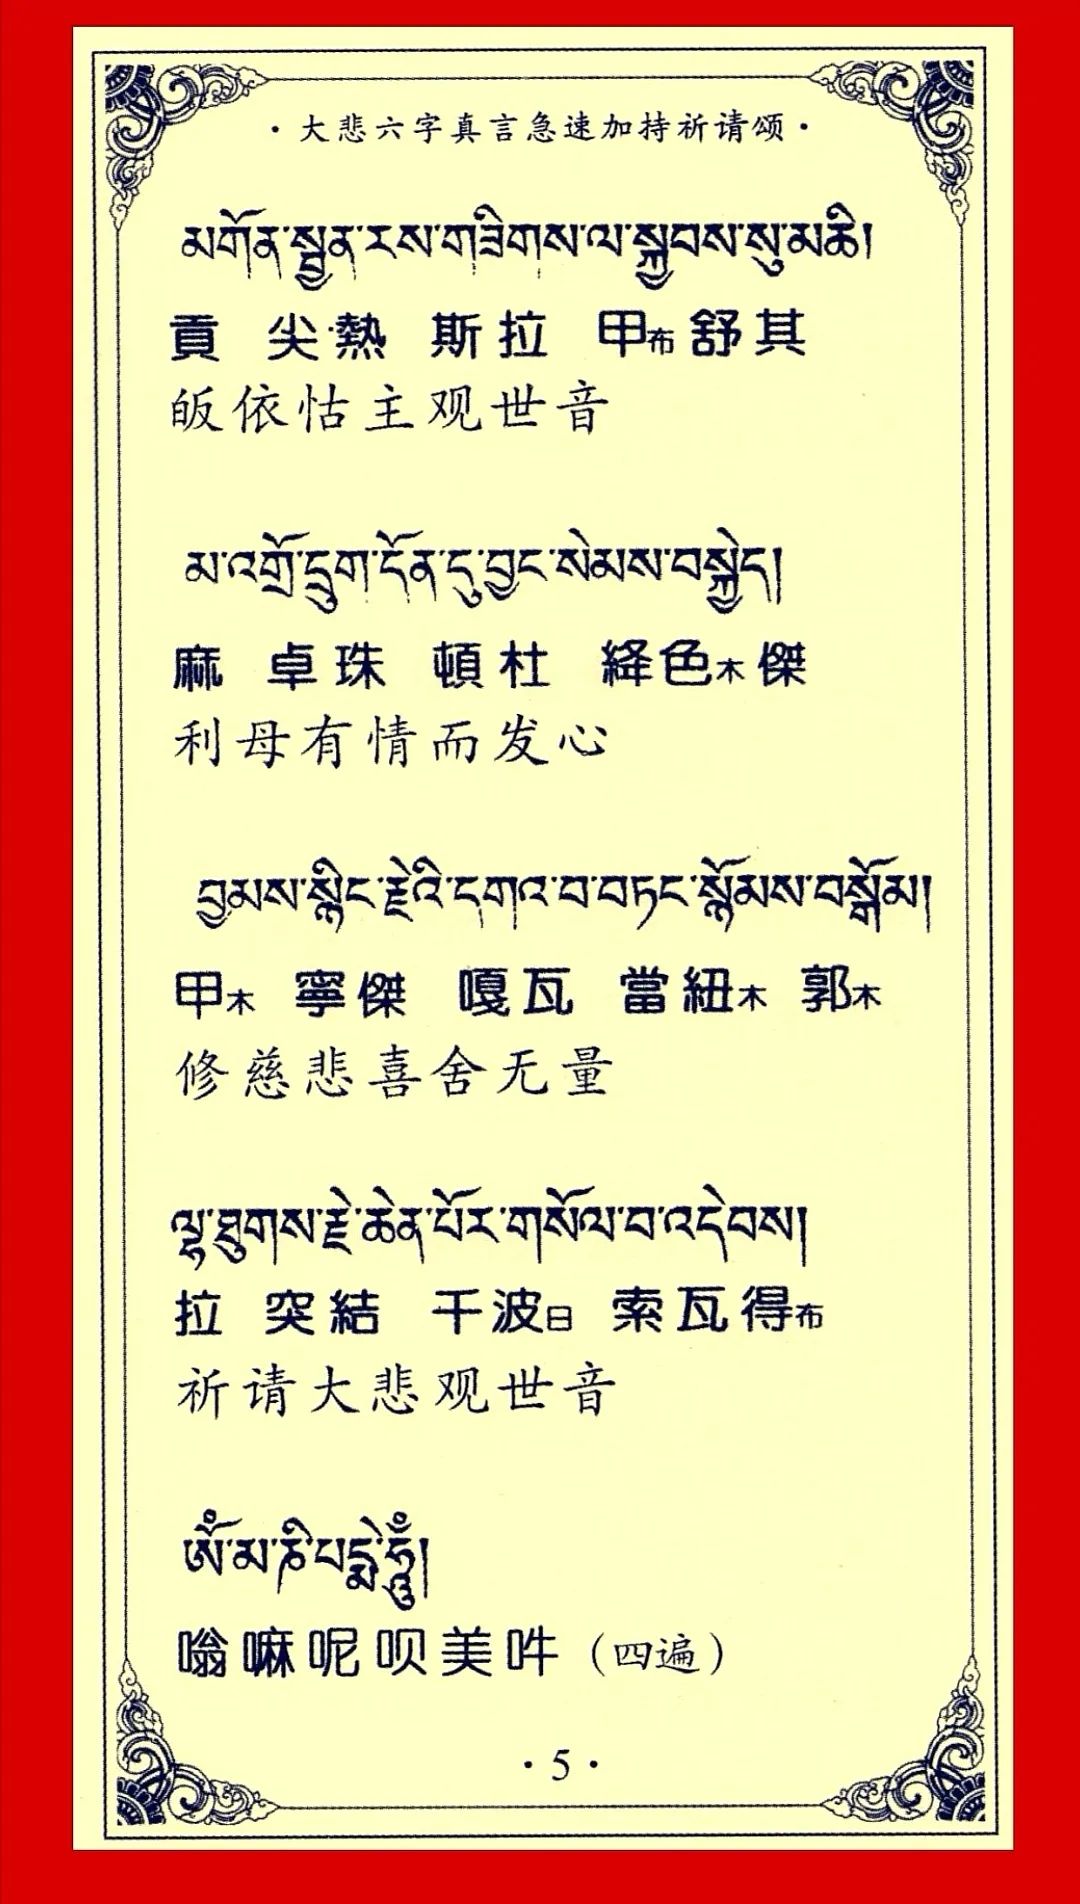 ·大悲六字真言急速加持祈请颂·
མགོན་སྤྱན་རས་གཟིགས་ལ་སྐྱབས་སུ་མཆི།
貢 尖熱 斯拉 甲布舒其
皈依怙主观世音
མ་འགྲོ་དྲུག་དོན་དུ་བྱང་སེམས་བསྐྱེད།
麻 卓珠 頓杜 絳色木傑
利母有情而发心
བྱམས་སྙིང་རྗེའི་དགའ་བ་བཏང་སྙོམས་བསྒོམ།
甲木 寧傑 嘎瓦 當紐木 郭木
修慈悲喜舍无量
ལྷ་ཐུགས་རྗེ་ཆེན་པོར་གསོལ་བ་འདེབས།
拉 突結 千波日 索瓦得布
祈请大悲观世音
ༀ་མ་ཎི་པདྨེ་ཧཱུྃ།
嗡嘛呢呗美吽（四遍）
·5·